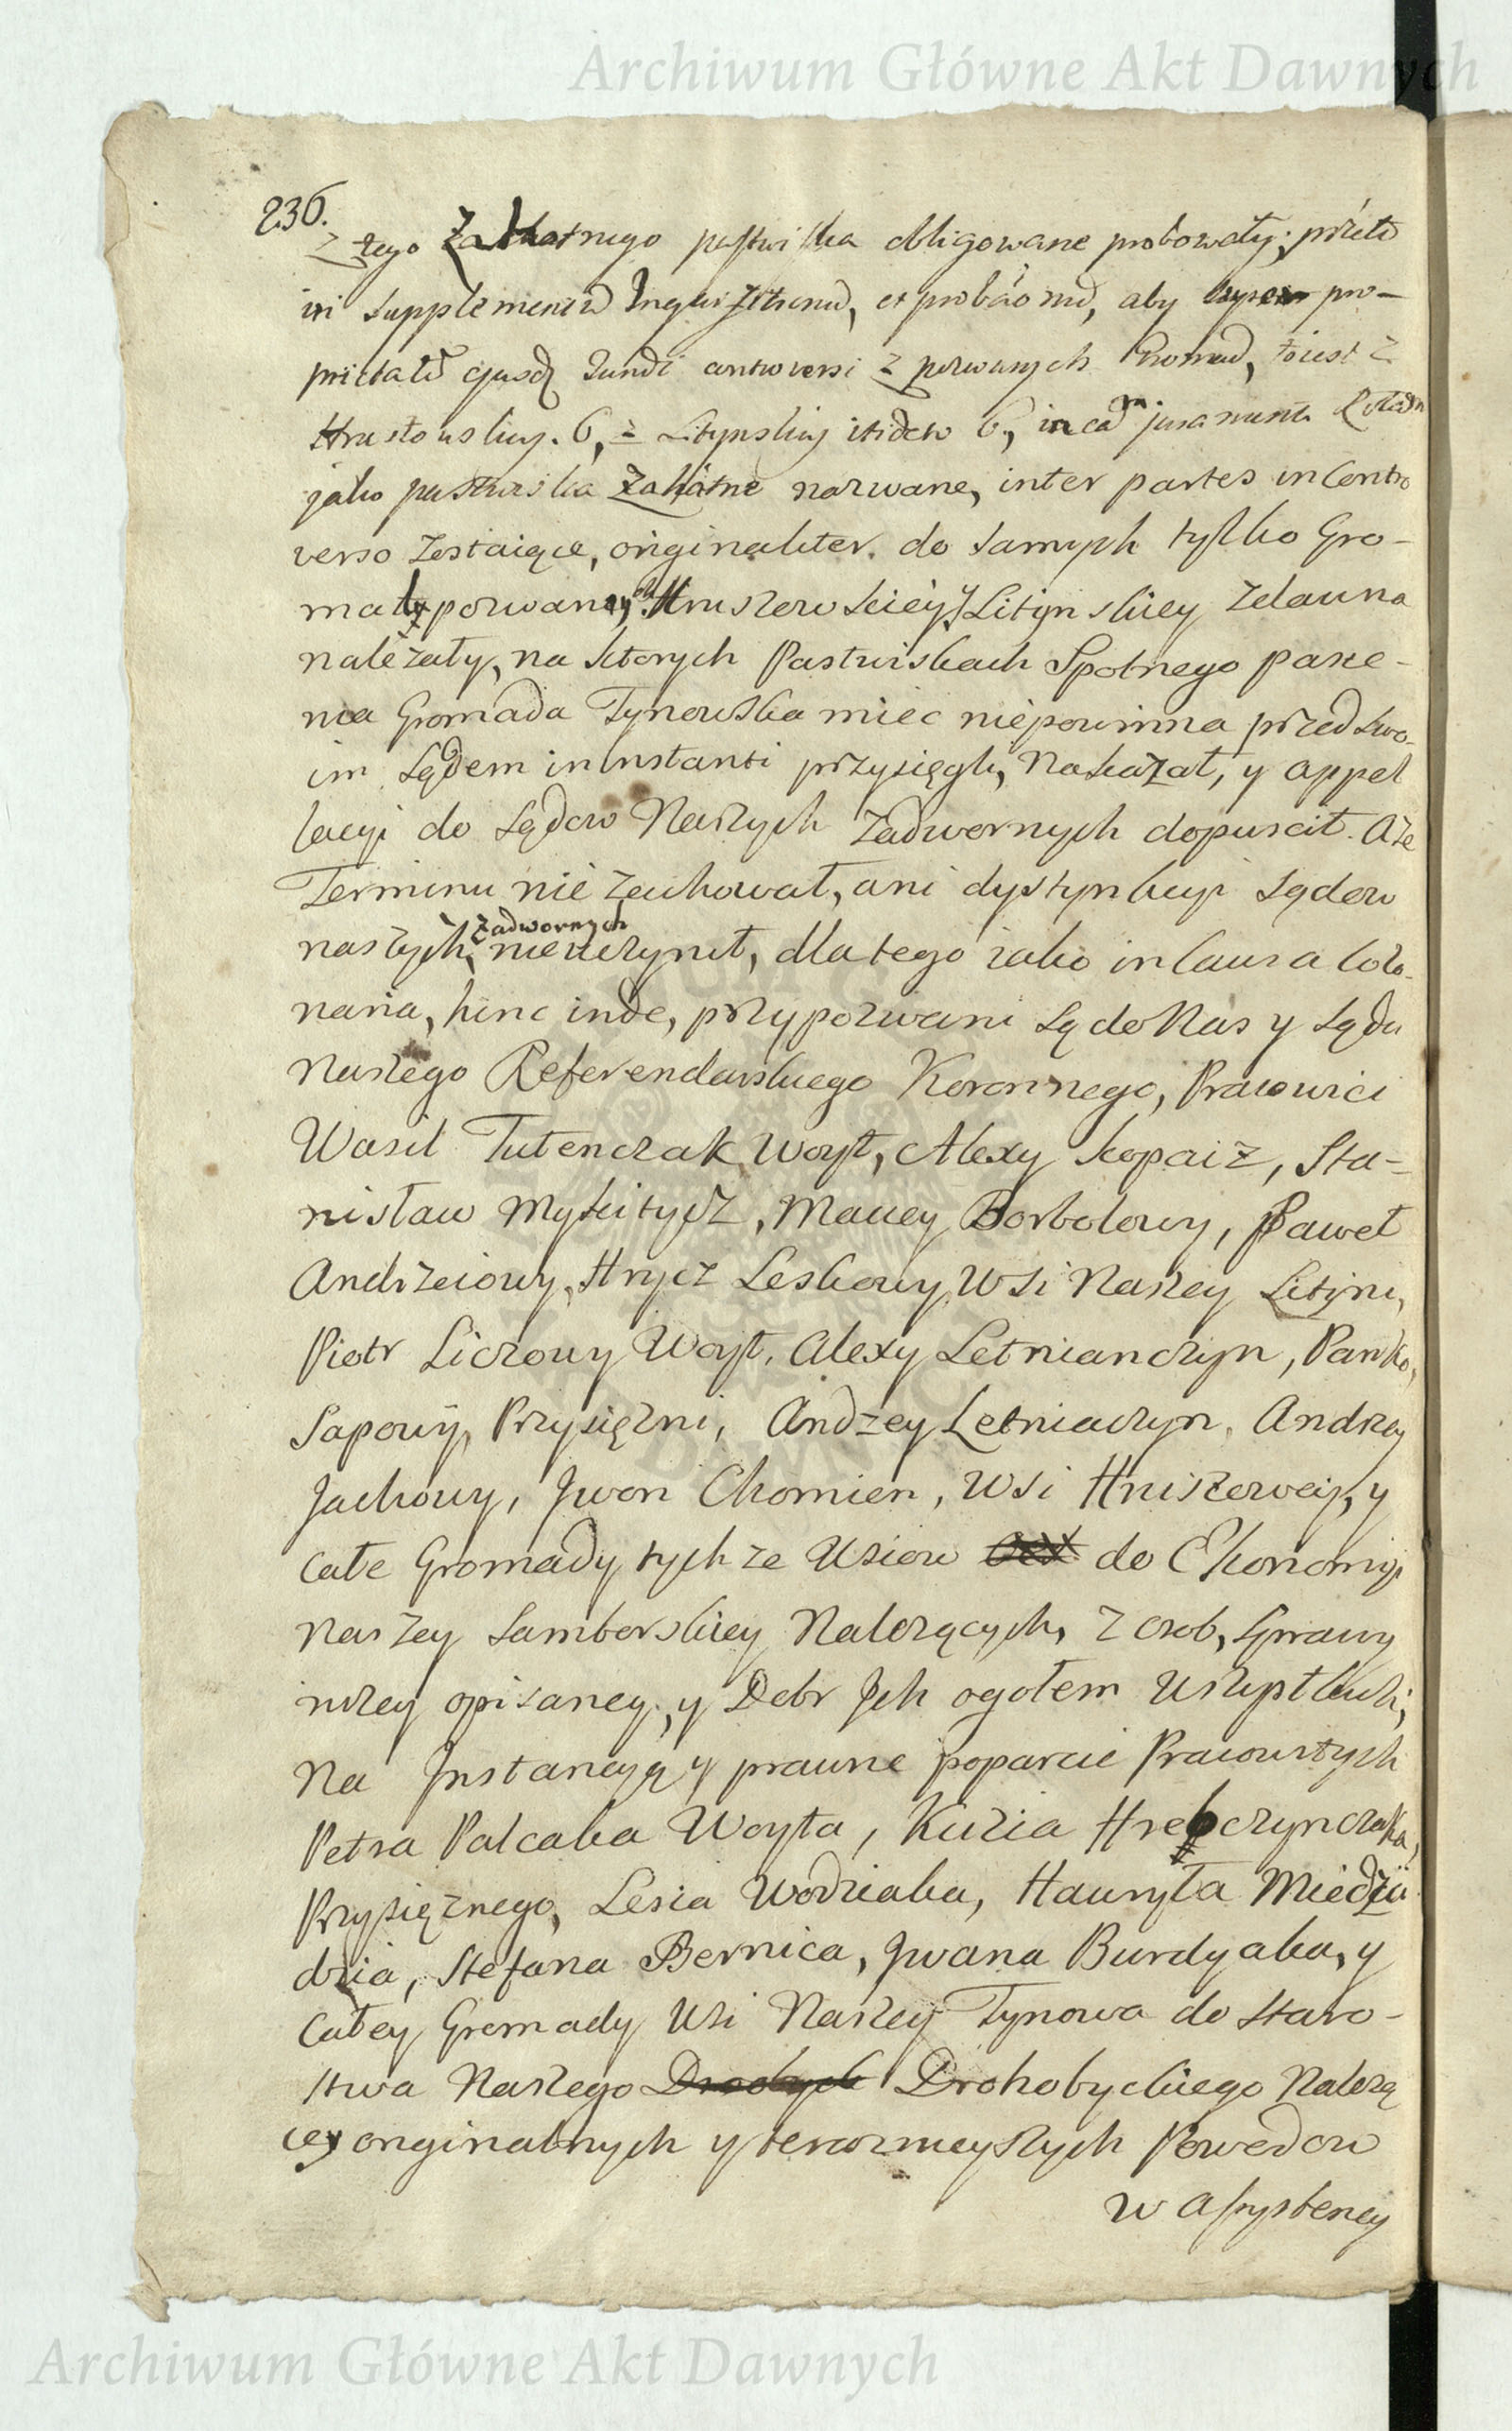 Archiwum Główne Akt Dawnych
236.
z tego Zakłotnego pastwiska obligowane probowały; przeto
in supplementum Inquisitionum, et probaonum, aby super pro-
prietate ejusdem fundi controversi z pozwanych Gromad, to iest z
6, z Litynskiey itidem 6, in eam juramenti Rotam
jako pastwiska Zakatne nazwane, inter partes in Contro
verso zostaiące, originaliter do samych tylko Gro-
mad pozwanych Hruszowskiey y Lityńskiey zdawna
należały, na ktorych Pastwiskach Spolnego pasze-
nia Gromada Tynowska miec niepowinna przed swo-
im Sądem in instanti przysięgli, Nakazał, y appel
lacyi do Sądow Naszych Zadwornych dopuscił. Aże
Terminu nie zachował, ani dystynkcyi Sądow
naszych Zadwornych nieuczynił, dla tego iako in causa colo-
naria, hinc inde, przypozwani są do Nas y Sądu
Naszego Referendarskiego Koronnego, Pracowici
Wasil Tutenczak Woyt, Alexy Kopaiz, Sta-
nisław Mykitycz, Maciey Borbolowy, Paweł
Andrzeiowy, Hrycz Leskowy Wsi Naszey Lityni,
Piotr Liczowy Woyt, Alexy Letnianczyn, Panko,
Sapowy Przysiężni, Andzey Letniaczyn, Andrzey
Jachowy, Jwon Chomien, Wsi Hniszowey, y
całe Gromady tychze Wsiow do Ekonomyi
Naszey Samborskiey Nalezących, z osob, Sprawy
inszey opisaney, y Dobr Jch ogołem wszystkich,
Na Jnstancyą y prawne poparcie Pracowitych
Petra Palcaka Woyta, Kuzia Hrebczynczaka,
Przysięznego, Lesia Wodziaka, Hawryła Miedzw
dzia, Stefana Bernica, Jwana Burdyaka, y
Całey Gromady Wsi Naszey Tynowa do Staro-
stwa Naszego Drohobyckiego Nalezą
cey originalnych y teraznieyszych Powodow
w assystency
Archiwum Główne Akt Dawnych